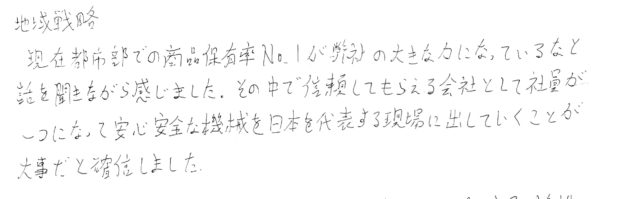 地域戦略
現在都市部での商品保有率No.1が弊社の大きな力になっているなと
話を聞きながら感じました。その中で信頼してもらえる会社として社員が
一つになって安心安全な機械を日本を代表する現場に出していくことが
大事だと確信しました。